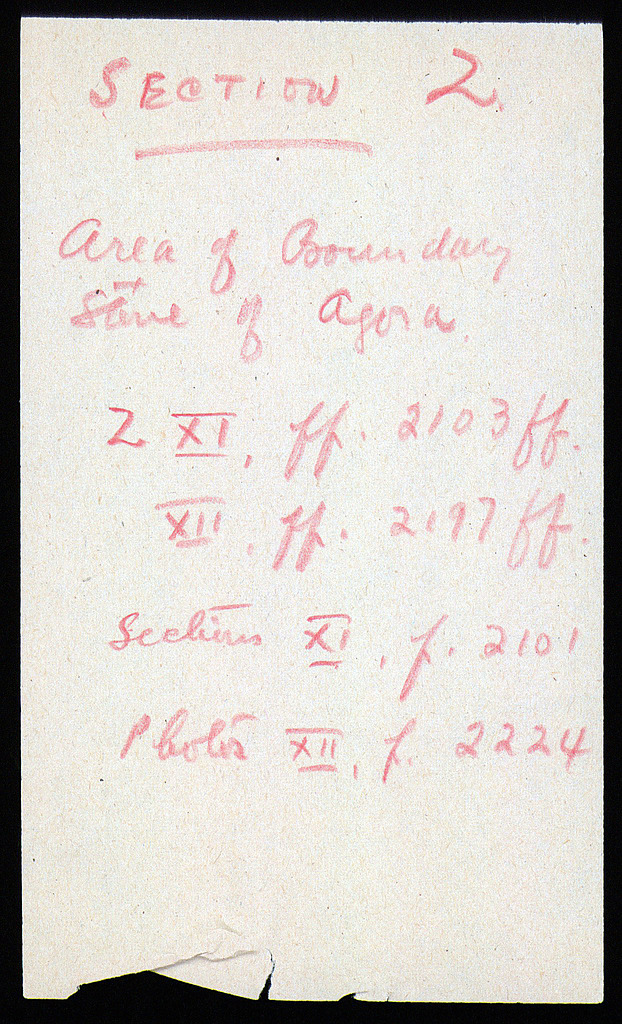 SECTION 2
Area of Boundary
Stone of Agora.
2 XI, ff. 2103 ff.
XII, ff. 2197 ff.
Sections XI, f. 2101
Photos XII, f. 2224